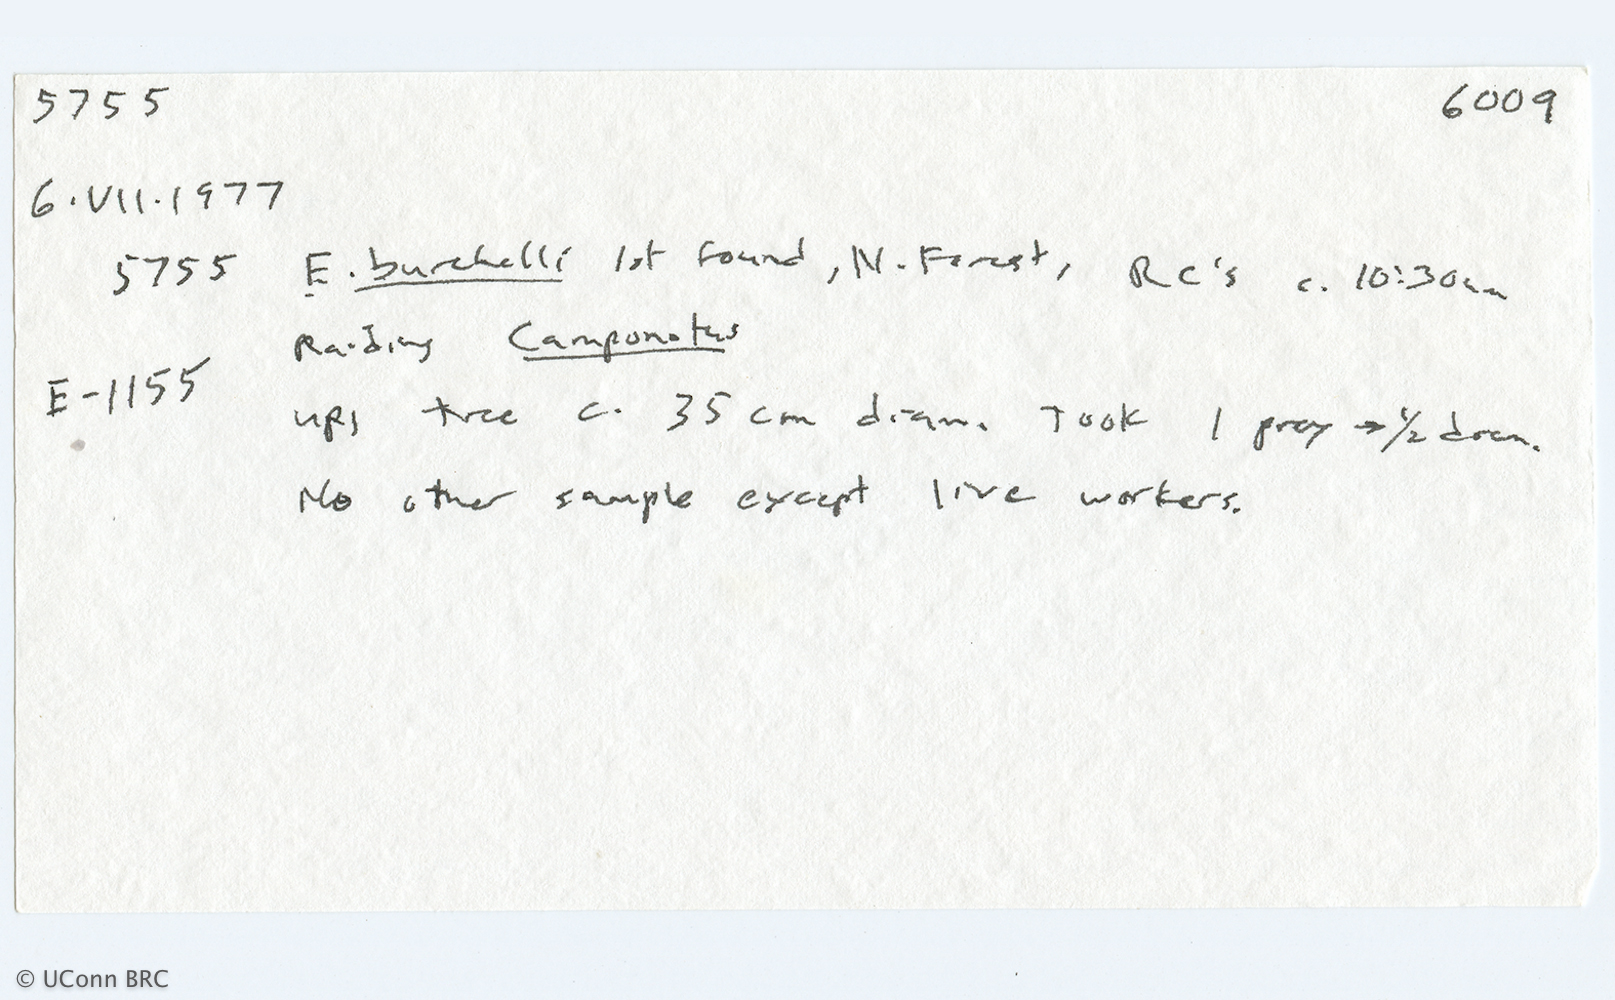 5755 6009
6.VII.1977
5755 E. burchelli 1st found, N. Forest, RC's c. 10:30am
Raiding Camponotus
E-1155
up tree c. 35 cm diam. Took 1 prey → 1/2 dram.
No other sample except live workers.
© UConn BRC